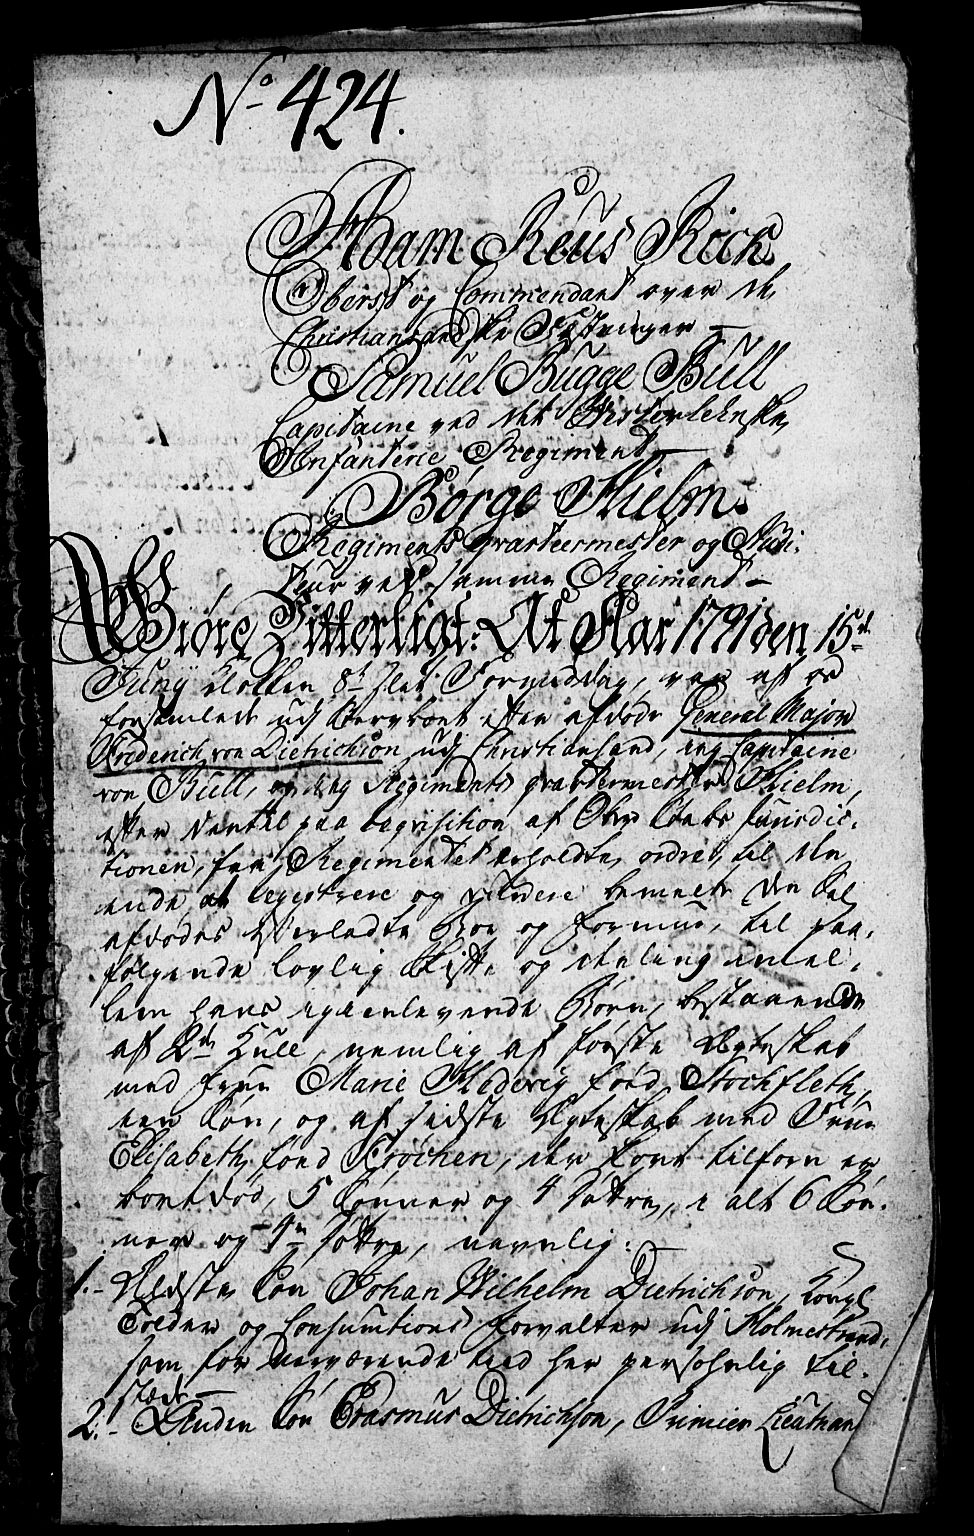 No 424.
Adam Reus Röck
Oberst og Commendant over de
Christiansandske Fæstninger
Samuel Bugge Bull
Capitaine ved det Vesterlehnske
Infanterie Regiment
Børge Hielm.
Regiments Qvarteermester og Audi-
teur ved samme Regiment
Giøre Vitterligt: At Aar 1791 den 15de
Juny Klokken 8te slet Formiddag, var
forsamlede udj Stervboet efter afdøde General Major
Friderich von Dietrichson udj Christiansand, ieg Capitaine
von Bull, og ieg Regiments qvarteermester Hielm,
efter paa Reqvisition af Ober Jurisdic-
tionen, fra Regimentet erholdte ordre, til den
ende at registrere og vurdere bemelte den Sal
afdødes Efterladte Boe og Formue, til paa-
følgende lovlig Skifte og deeling imel-
lem hans igienlevende Børn, bestaaende
af 2de Kuld, nemlig af første Ægteskab
med Frue Marie Hedevig fød Stockfleth,
een Søn, og af sidste Ægteskab med Frue
Elisabeth fød Krøchen, der forud tilforn er
bortdød, 5 Sønner og 4 Døttre, i alt 6 Søn-
ner og 4re Døttre, navnlig:
1. Ældste Søn Johan Wilhelm Dietrichson, Kongl
Tolder og Consumtions Forvalter udj Holmestrand,
som for nærværende tiid her personlig til-
stæde
2. Anden Søn Erasmus Dietrichson, Primier Lieutnant